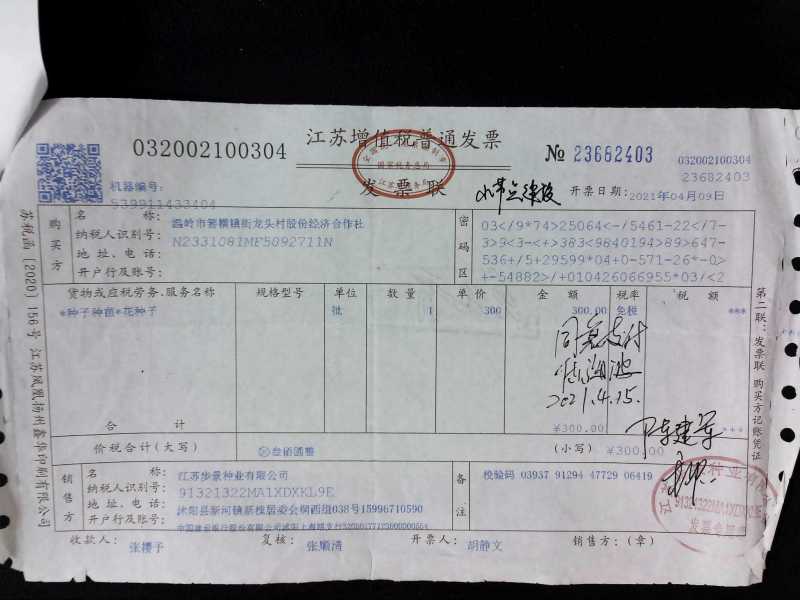 江苏增值税普通发票
发票联
032002100304
№ 23682403
032002100304
23682403
机器编号:
539911433404
开票日期: 2021年04月09日
购买方
名称: 温岭市箬横镇街龙头村股份经济合作社
纳税人识别号: N2331081MF5092711N
地址、电话:
开户行及账号:
密码区
03</9*74>25064<-/5461-22</7-
3>9<3-<+>383<9840194>89>647-
536+/5+29599*04+0-571-26*-0>
+-54882>/+010426066955*03/<2
货物或应税劳务、服务名称 规格型号 单位 数量 单价 金额 税率 税额
*种子种苗*花种子 批 1 300 300.00 免税 ***
同意支付
2021.4.15.
合计 ¥300.00 ***
价税合计(大写) ⊗叁佰圆整 (小写) ¥300.00
销售方
名称: 江苏步景种业有限公司
纳税人识别号: 91321322MA1XDXKL9E
地址、电话: 沭阳县新河镇新槐居委会桐西组038号15996710590
开户行及账号:
备注
校验码 03937 91294 47729 06419
收款人: 张樱予 复核: 张顺清 开票人: 胡静文 销售方:(章)
苏税函〔2020〕156号 江苏凤凰扬州鑫华印刷有限公司
第二联:发票联 购买方记账凭证
91321322MA1XDXKL9E
发票专用章